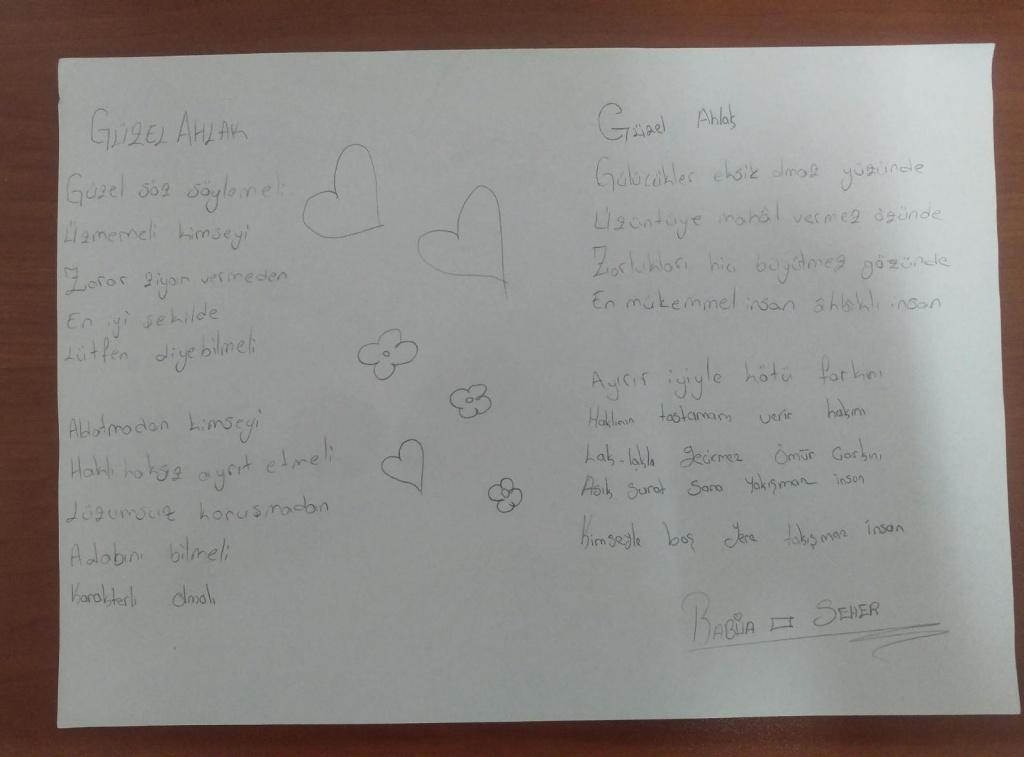 GÜZEL AHLAK
Güzel söz söylemeli
Üzmemeli kimseyi
Zarar ziyan vermeden
En iyi şekilde
Lütfen diyebilmeli
Aldatmadan kimseyi
Haklı haksız ayırt etmeli
Lüzumsuz konuşmadan
Adabını bilmeli
Karakterli olmalı
Güzel Ahlak
Gülücükler eksik olmaz yüzünde
Üzüntüye mahâl vermez özünde
Zorlukları hiç büyütmez gözünde
En mükemmel insan ahlaklı insan
Ayırır iyiyle kötü farkını
Haklının tastamam verir hakını
Lak-lakla geçirmez Ömür Çarkını
Asık Surat Sana Yakışmaz insan
Kimseyle boş yere takışmaz insan
RABİA SEHER